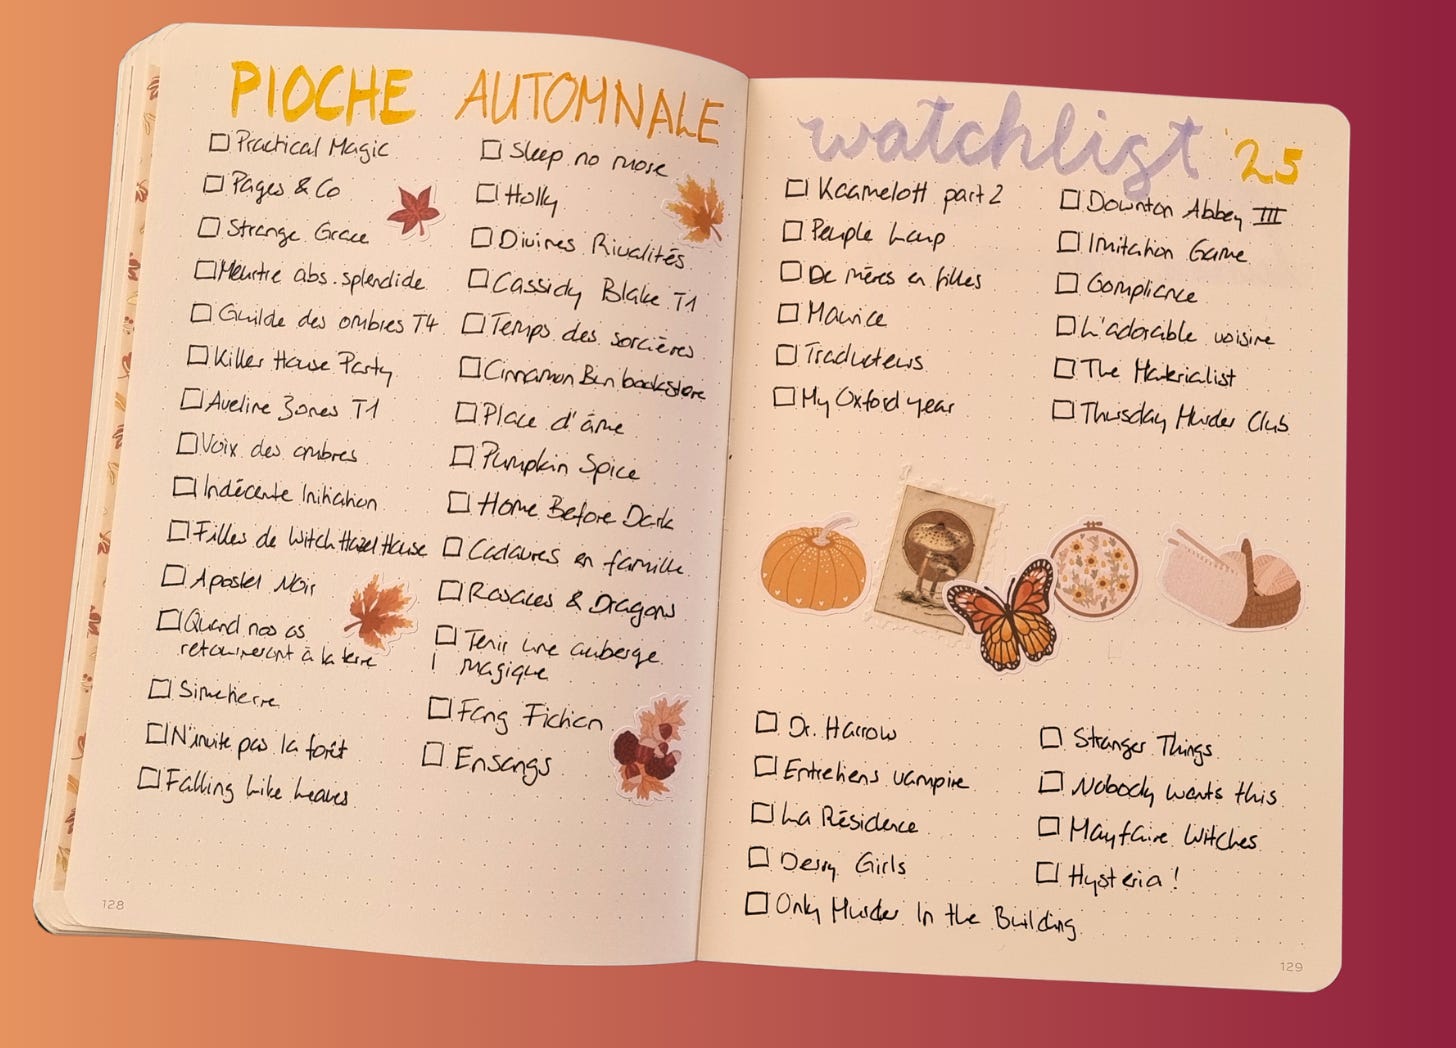 PIOCHE AUTOMNALE
Practical Magic
Pages & Co
Strange Grace
Meurtre abs. splendide
Guilde des ombres T4
Killer House Party
Aveline Jones T1
Voix des ombres
Indécente Initiation
Filles de Witch Hazel House
Apostel Noir
Quand nos os
retourneront à la terre
Simetierre
N'invite pas la forêt
Falling Like Leaves
Sleep no more
Holly
Divines Rivalités
Cassidy Blake T1
Temps des sorcières
Cinnamon Bun bookstore
Place d'âme
Pumpkin Spice
Home Before Dark
Cadavres en famille
Rosaces & Dragons
Tenir une auberge
magique
Fang Fiction
Ensangs
128
watchlist '25
Kaamelott part 2
Peuple Loup
De mères en filles
Maurice
Traducteurs
My Oxford year
Downton Abbey III
Imitation Game
Compliance
L'adorable voisine
The Materialist
Thursday Murder Club
Dr. Harrow
Entretiens vampire
La Résidence
Derry Girls
Only Murder In the Building
Stranger Things
Nobody wants this
Mayfaire Witches
Hysteria !
129